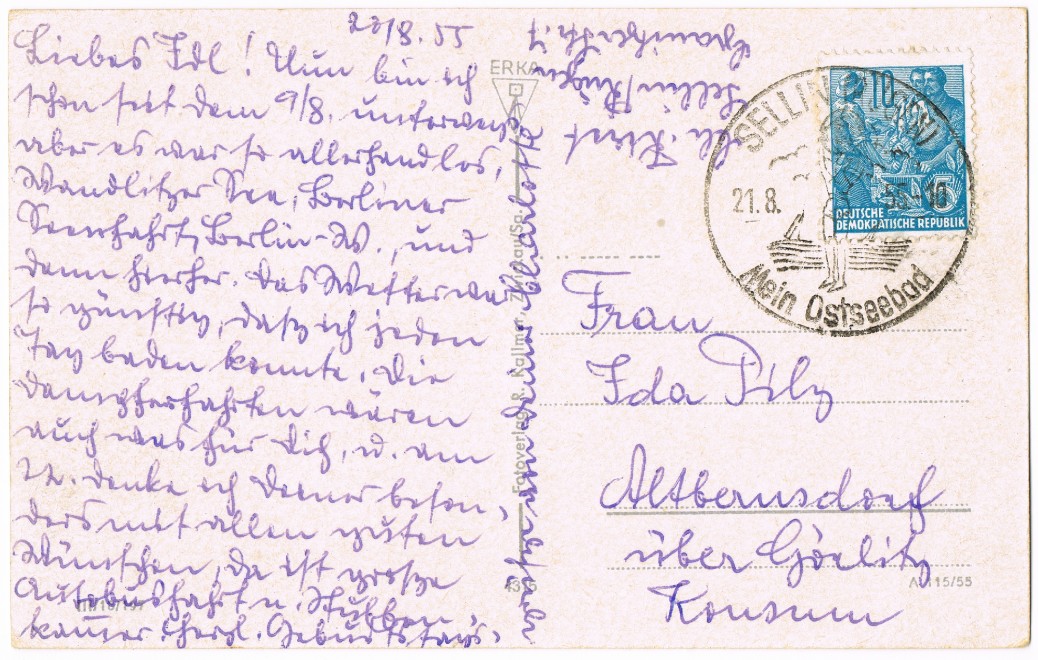 22/8. 55
Liebes Idl! Nun bin ich
schon seit dem 9/8. unterwegs
aber es war so allerhand los,
Wandlitzer See, Berliner
Seenfahrt, Berlin-W., und
dann hierher. Das Wetter war
so günstig, dass ich jeden
Tag baden konnte. Die
Dampferfahrten wären
auch was für Dich, u. am
22. denke ich Deiner beson-
ders mit allen guten
Wünschen, da ist grosse
Autobusfahrt n. Stubben-
kammer. Herzl. Geburtstags-
von Deiner Charlotte
Sellin/Rügen
ERKA
Fotoverlag R. Kallmer, Zwickau/Sa.
SELLIN
21.8. 55-18
Mein Ostseebad
10
5
DEUTSCHE
DEMOKRATISCHE REPUBLIK
Frau
Ida Pilz
Altbernsdorf
über Görlitz
Konsum
A 115/55